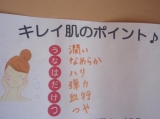 キレイ肌のポイント♪
う 潤い
な なめらか
は ハリ
だ 弾力
け 血行
つ つや